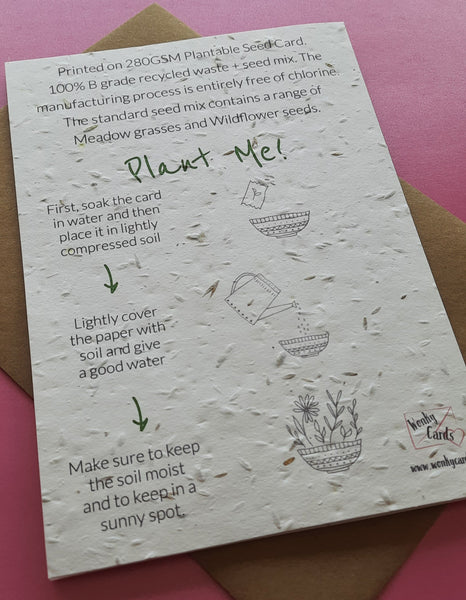 Printed on 280GSM Plantable Seed Card.
100% B grade recycled waste + seed mix. The
manufacturing process is entirely free of chlorine.
The standard seed mix contains a range of
Meadow grasses and Wildflower seeds.
Plant Me!
First, soak the card
in water and then
place it in lightly
compressed soil
Lightly cover
the paper with
soil and give
a good water
Make sure to keep
the soil moist
and to keep in a
sunny spot.
Wenky
Cards
www.wenkycard